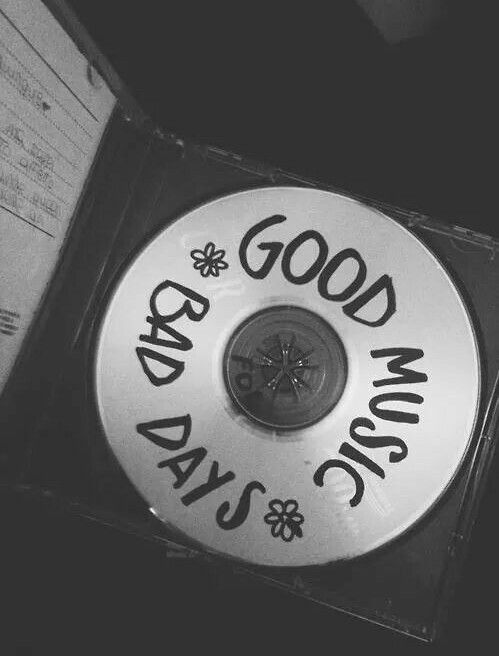 GOOD MUSIC
FO
BAD DAYS